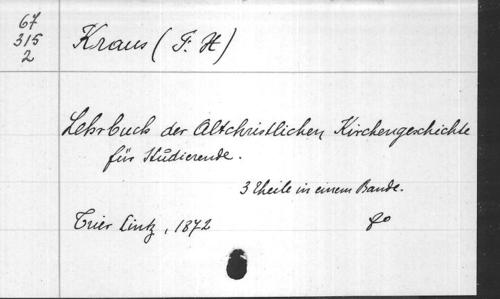 67
315
2
Kraus (F. H)
Lehrbuch der Altchristlichen Kirchengeschichte
für Studierende.
3 Theile in einem Bande.
Trier Lintz, 1872